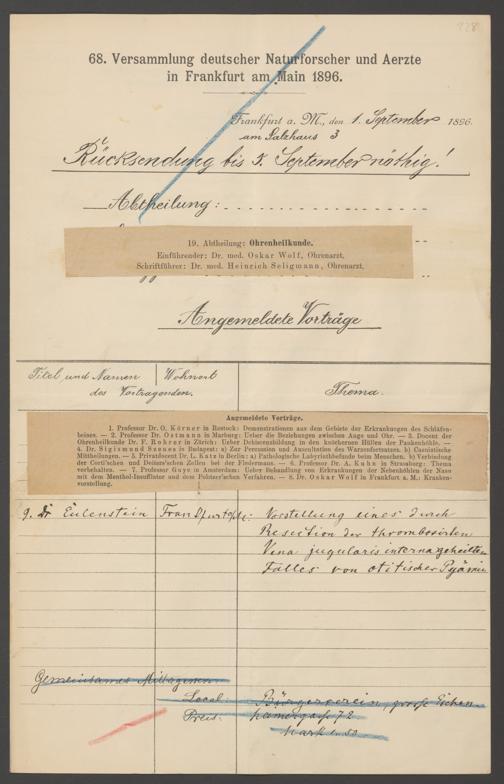 928
68. Versammlung deutscher Naturforscher und Aerzte
in Frankfurt am Main 1896.
Frankfurt a. M., den 1. September 1896.
am Salzhaus 3
Rücksendung bis 5. September nöthig!
Abtheilung:
19. Abtheilung: Ohrenheilkunde.
Einführender: Dr. med. Oskar Wolf, Ohrenarzt.
Schriftführer: Dr. med. Heinrich Seligmann, Ohrenarzt.
Angemeldete Vorträge
Titel und Namen Wohnort
des Vortragenden. Thema.
Angemeldete Vorträge.
1. Professor Dr. O. Körner in Rostock: Demonstrationen aus dem Gebiete der Erkrankungen des Schläfen-
beines. — 2. Professor Dr. Ostmann in Marburg: Ueber die Beziehungen zwischen Auge und Ohr. — 3. Docent der
Ohrenheilkunde Dr. F. Rohrer in Zürich: Ueber Dehiscenzbildung in den knöchernen Hüllen der Paukenhöhle. —
4. Dr. Sigismund Szenes in Budapest: a) Zur Percussion und Auscultation des Warzenfortsatzes. b) Casuistische
Mittheilungen. — 5. Privatdocent Dr. L. Katz in Berlin: a) Pathologische Labyrinthbefunde beim Menschen. b) Verbindung
der Corti'schen und Deiters'schen Zellen bei der Fledermaus. — 6. Professor Dr. A. Kuhn in Strassburg: Thema
vorbehalten. — 7. Professor Guye in Amsterdam: Ueber Behandlung von Erkrankungen der Nebenhöhlen der Nase
mit dem Menthol-Insufflator und dem Politzer'schen Verfahren. — 8. Dr. Oskar Wolf in Frankfurt a. M.: Kranken-
vorstellung.
9. Dr Eulenstein Frankfurt a/M: Vorstellung eines durch
Resection der thrombosirten
Vena jugularis interna geheilten
Falles von otitischer Pyämie
Gemeinsames Mittagessen.
Local: Bürgerverein, große Eschen-
Preis: heimergasse 72
Mark